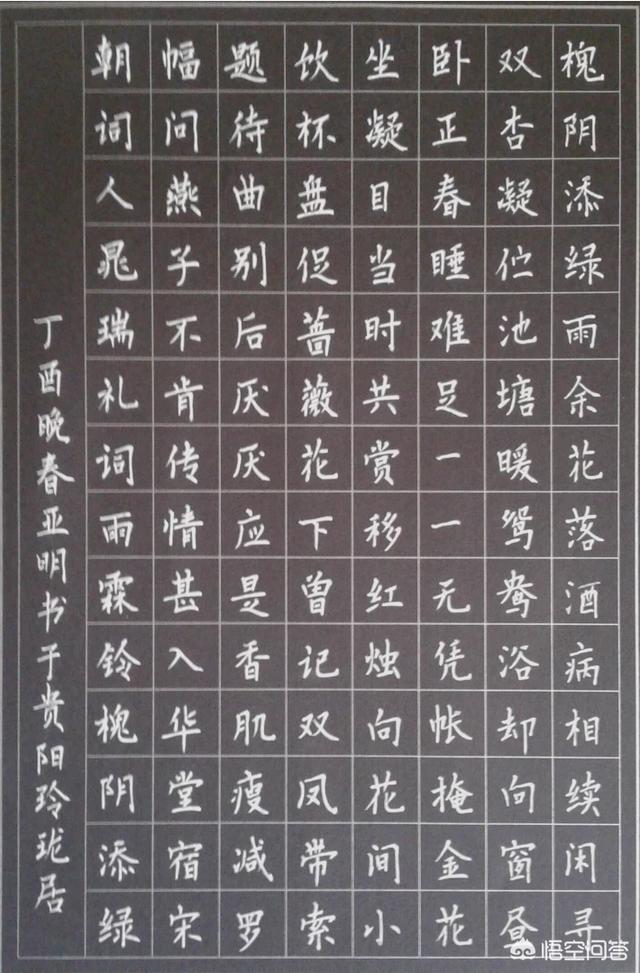 槐阴添绿雨余花落酒病相续闲寻
双杏凝伫池塘暖鸳鸯浴却向窗昼
卧正春睡难足一一无凭帐掩金花
坐凝目当时共赏移红烛向花间小
饮杯盘促蔷薇花下曾记双凤带索
题待曲别后厌厌应是香肌瘦减罗
幅问燕子不肯传情甚入华堂宿宋
朝词人晁瑞礼词雨霖铃槐阴添绿
丁酉晚春亚明书于贵阳玲珑居
悟空问答